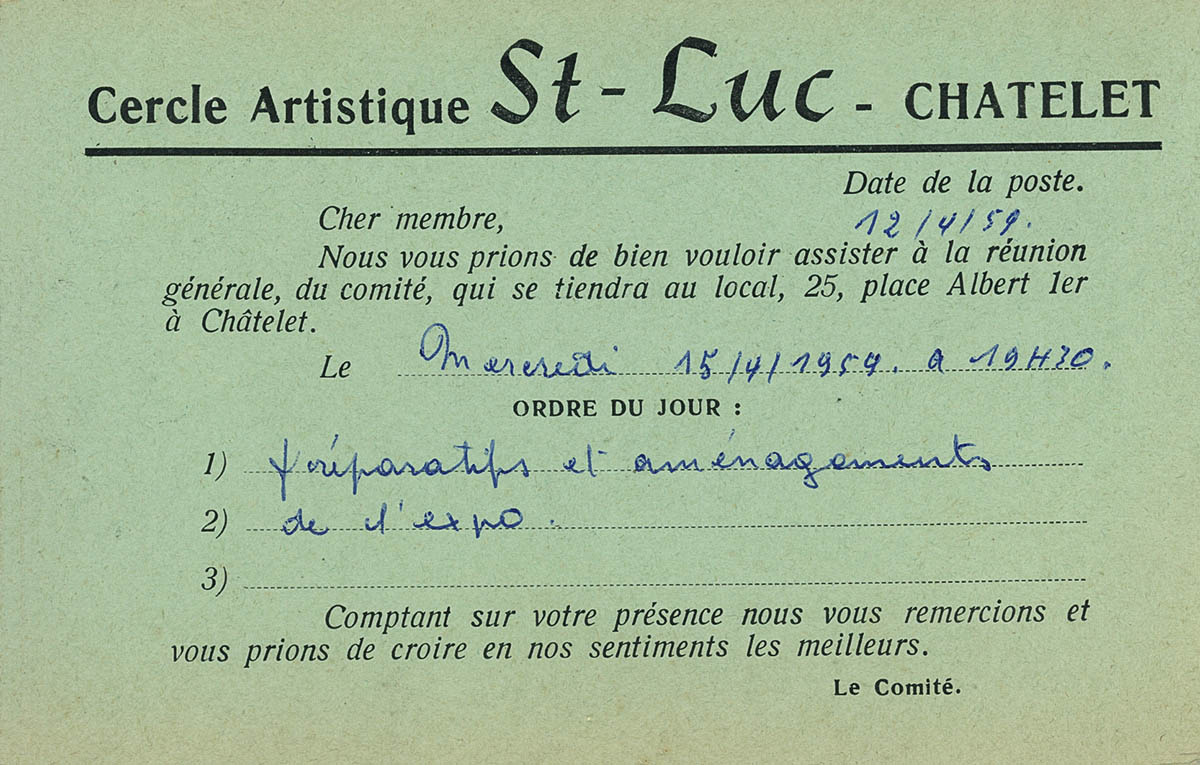 Cercle Artistique St-Luc - CHATELET
Date de la poste.
Cher membre,
12/4/59.
Nous vous prions de bien vouloir assister à la réunion
générale, du comité, qui se tiendra au local, 25, place Albert 1er
à Châtelet.
Le Mercredi 15/4/1959. a 19H30.
ORDRE DU JOUR :
1) préparatifs et aménagements
2) de l'expo.
3)
Comptant sur votre présence nous vous remercions et
vous prions de croire en nos sentiments les meilleurs.
Le Comité.